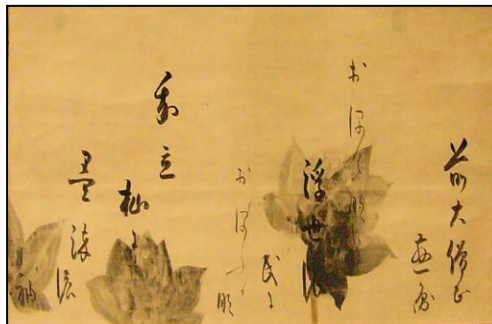 前大僧正
慈圓
おほけなく
浮世能
民に
おほふ哉
我立
杣に
墨染濃
袖